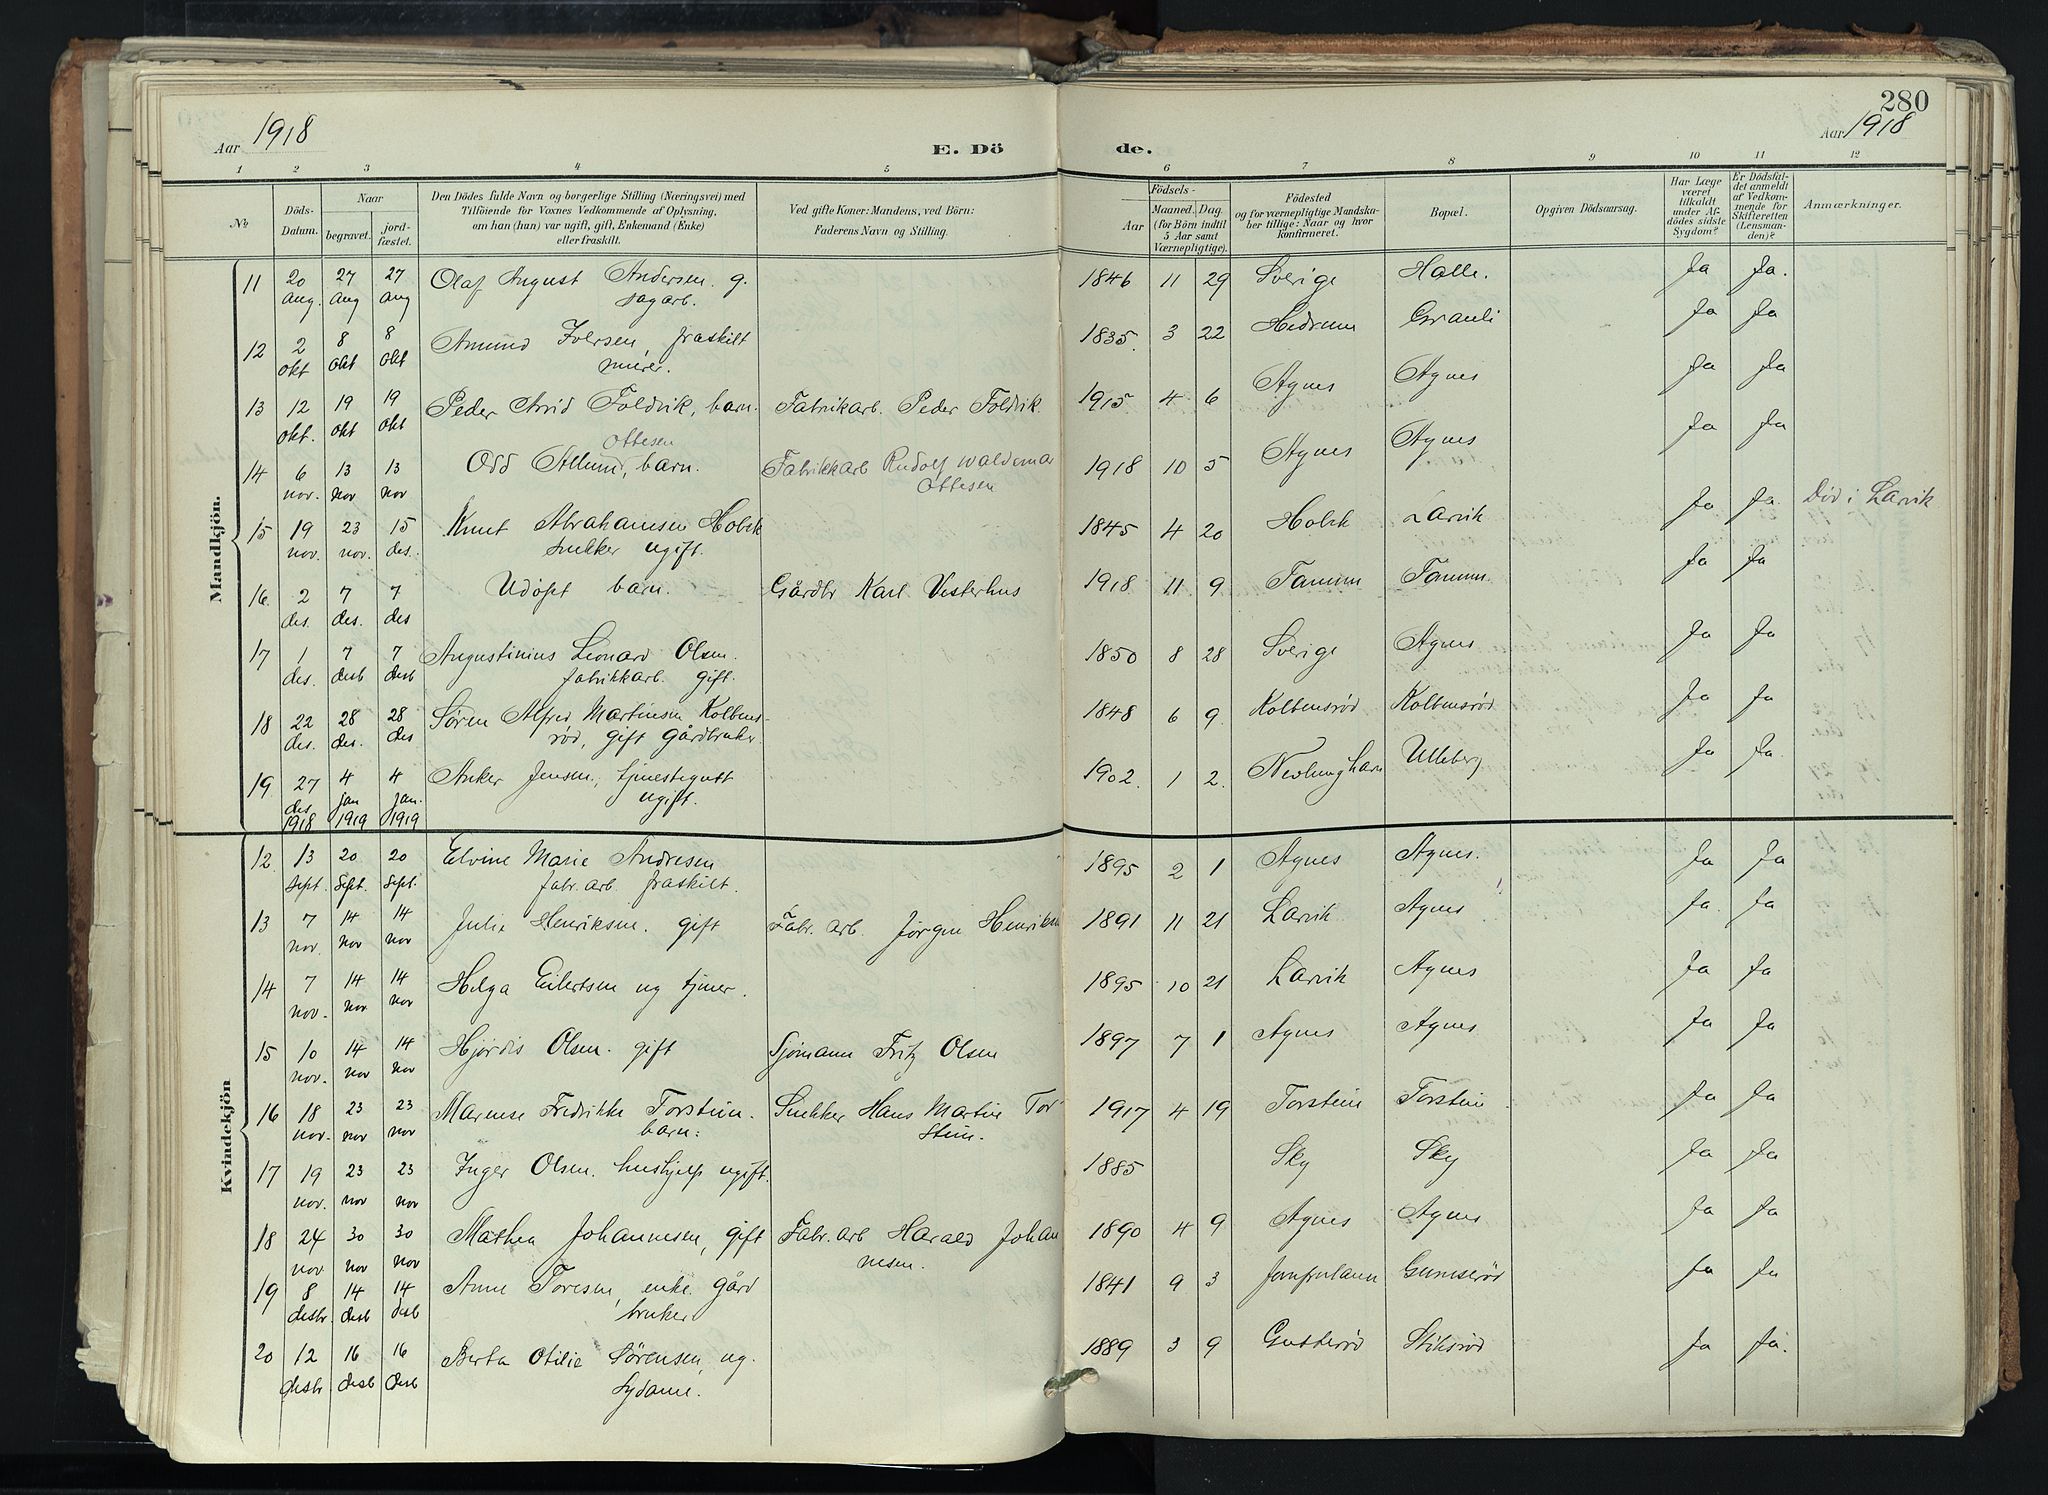 280
Aar 1918
E. Dö
de.
Aar 1918
1 2 3 4 5 6 7 8 9 10 11 12
№
Döds-Datum.
Naar
begravet.
jord-fæstet.
Den Dödes fulde Navn og borgerlige Stilling (Næringsvei) med
Tilföiende for Voxnes Vedkommende af Oplysning,
om han (hun) var ugift, gift, Enkemand (Enke)
eller fraskilt.
Ved gifte Koner: Mandens, ved Börn:
Faderens Navn og Stilling.
Födsels-
Aar
Maaned. Dag.
(for Börn indtil
5 Aar samt
Værnepligtige).
Födested
og for værnepligtige Mandska-
ber tillige: Naar og hvor
konfirmeret.
Bopæl.
Opgiven Dödsaarsag.
Har Læge
været
tilkaldt
under Af-
dödes sidste
Sygdom?
Er Dödsfal-
det anmeldt
af Vedkom-
mende for
Skifteretten
(Lensman-
den)?
Anmærkninger.
Mandkjön.
11 20 27 27 Olaf August Andersen. g. 1846 11 29 Sverige Halle. Ja Ja.
aug. aug aug sagarb.
12 2 8 8 Amund Iversen, fraskilt 1835. 3 22 Hedrum Granli Ja Ja
okt okt okt murer.
13 12 19 19 Peder Arvid Foldvik, barn. Fabrikarb. Peder Foldvik. 1915 4 6 Agnes Agnes Ja Ja
okt. okt okt
Ottesen
14 6 13 13 Odd Allum, barn. Fabrikkarb Rudolf Waldemar 1918 10 5 Agnes Agnes Ja Ja
nov. nov nov Ottesen
15 19 23 15 Knut Abrahamsen Holsk 1845 4 20 Holsk Larvik Ja Ja. Död i Larvik
nov. nov. des. Snekker ugift.
16 2 7 7 Udøpt barn. Gårdbr Karl Vesterhus 1918. 11 9 Tanum Tanum. Ja Ja
des. des. des
17 1 7 7 Augustinius Leonard Olsen. 1850 8 28 Sverige Agnes Ja Ja
des. desb desb fabrikkarb. gift.
18 22 28 28 Søren Alfred Martinsen Kolbens- 1848 6 9 Kolbensrød Kolbensrød Ja Ja
des. des. des rød, gift gårdbruker.
19 27 4 4 Anker Jensen, tjenestegutt 1902. 1 2. Nevlunghavn Ulleberg Ja Ja.
des. jan jan. ugift.
1918 1919 1919
Kvindekjön
12 13 20 20 Elvine Marie Andresen 1895 2 1 Agnes Agnes. Ja Ja
sept. sept. sept. fabr. arb. fraskilt.
13 7 14 14 Julie Henriksen. gift Fabr. arb. Jørgen Henriksen 1891 11 21 Larvik Agnes Ja. Ja
nov. nov nov
14 7 14 14 Helga Eilertsen ug tjener. 1895 10 21 Larvik Agnes Ja Ja
nov. nov nov
15 10 14 14 Hjørdis Olsen. gift Sjømann Fritz Olsen 1897 7 1 Agnes Agnes Ja Ja
nov. nov nov
16 18 23 23 Marnese Fredrikke Torstein. Snekker Hans Martin Tor 1917 4 19 Torstein Torstein Ja Ja
nov. nov nov barn: stein.
17 19 23 23 Inger Olsen. hushjelp ugift. 1885 Sky Sky Ja Ja
nov. nov nov
18 24 30 30 Mathea Johannesen, gift Fabr. arb Harald Johan 1890 4 9 Agnes Agnes Ja Ja
nov nov nov nesen.
19 8 14 14 Anne Toresen, enke. gård 1841 9 3 Jomfruland Gumserød Ja Ja
desbr. desb desb bruker
20 12 16 16 Berta Otilie Sørensen, ug. 1889 3 9 Gusserød Stiksrød Ja Ja.
desbr. desb desb Sydame.